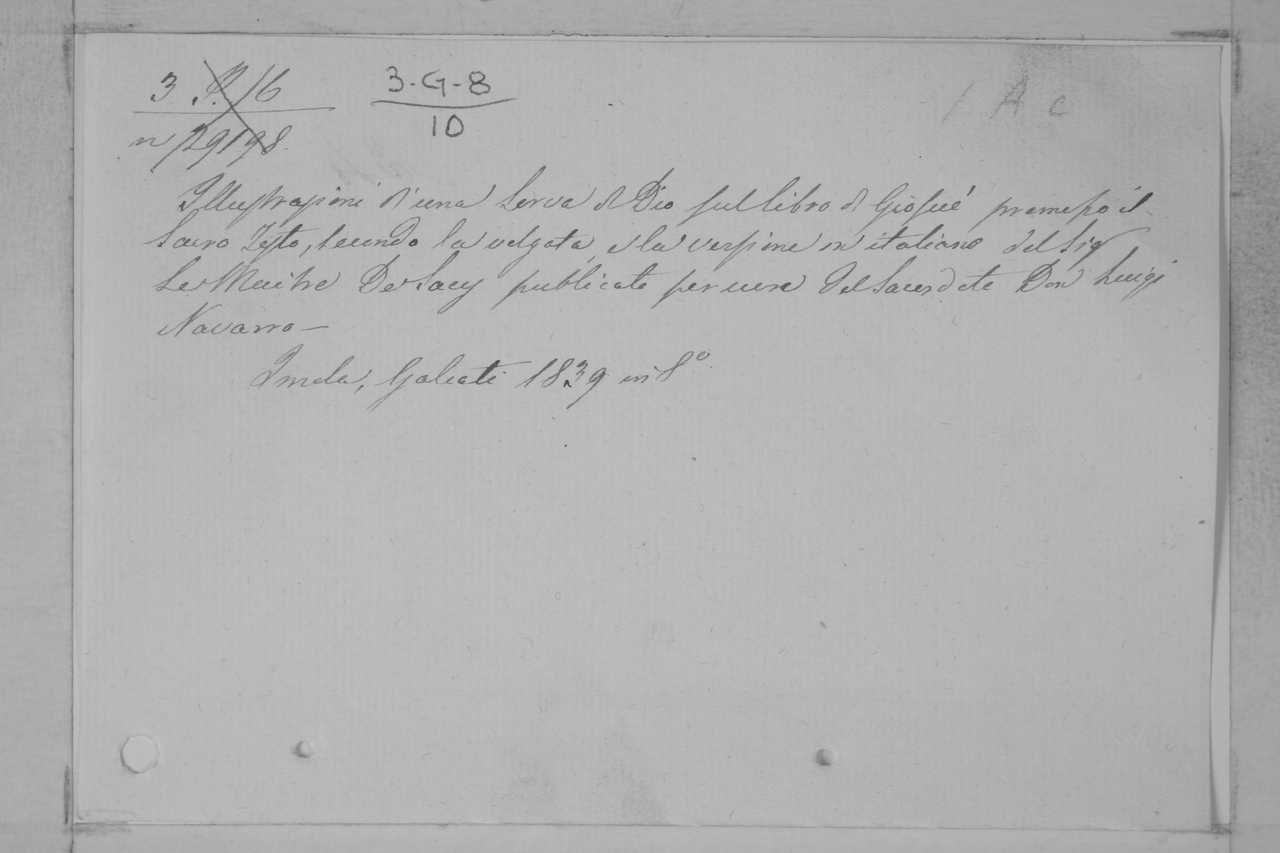 3 P. 16
3-G-8
1 A c
n 29198
10
Illustrazioni d'una Serva di Dio sul libro di Giosué premesso il
Sacro Testo, secondo la volgata, e la versione in italiano del Sig
Le Maitre De Sacy publicate per cura del Sacerdote Don Luigi
Navarro—
Imola, Galeati 1839 in 8°